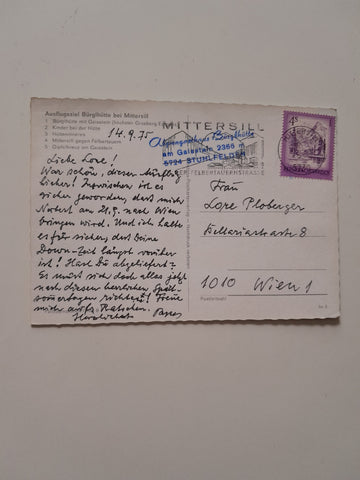 Ausflugsziel Bürglhütte bei Mittersill
1 Bürglhütte mit Gaisstein (höchster Grasberg
2 Kinder bei der Hütte
3 Hütteninneres
4 Mittersill gegen Felbertauern
5 Gipfelkreuz am Gaisstein
14.9.75
MITTERSILL
Alpengasthaus Bürglhütte
am Gaisstein, 2366 m
5724 STUHLFELDEN
FELBERTAUERNSTRASSE
4S
Liebe Lore!
War schön, dieser Ausflug,
lieber! Inzwischen ist es
sicher geworden, dass mich
Norbert am 21.9. nach Wien
bringen wird. Und ich halte
es für sicher, dass Deine
Down-Zeit längst vorüber
ist! Hast Du abgeliefert?
Es muss sich doch alles jetzt
nach diesen herrlichen Spät-
sommertagen richten! Freue
mich aufs Ratschen.
Herzlichst
Frau
Lore Ploberger
Bellariastrasse 8
1010 Wien 1
Postleitzahl